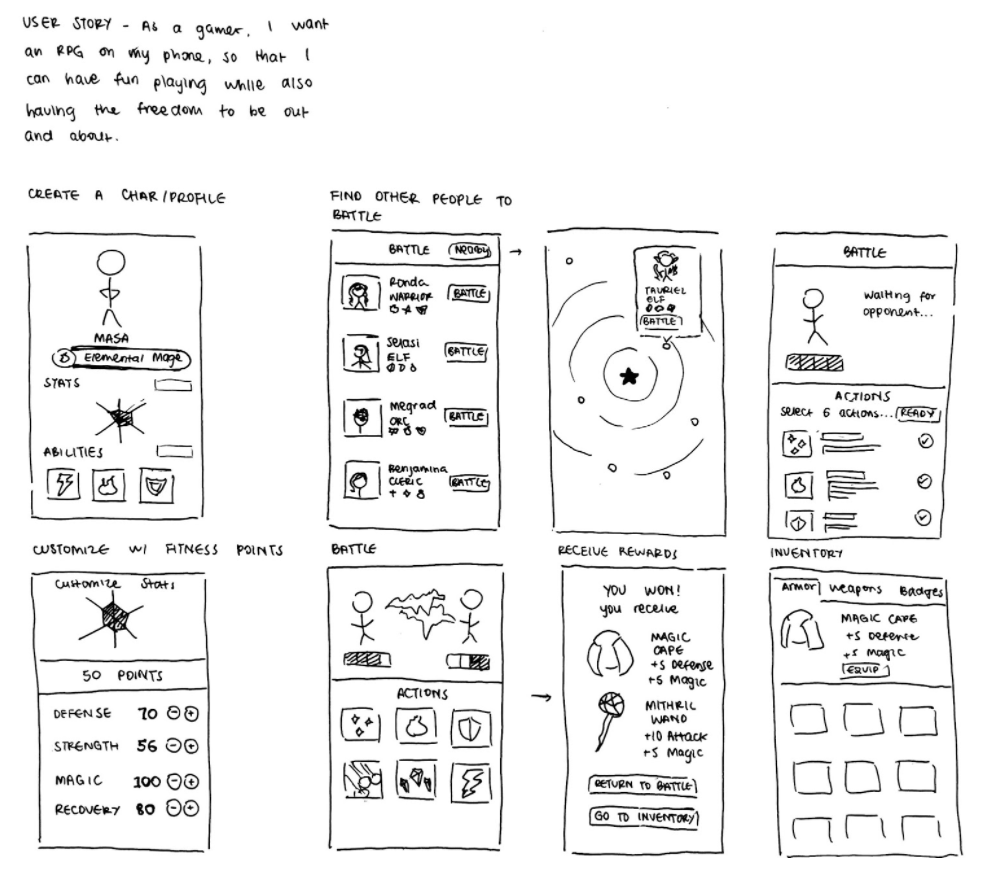 USER STORY - As a gamer, I want
an RPG on my phone, so that I
can have fun playing while also
having the freedom to be out
and about.
CREATE A CHAR/PROFILE
MASA
Elemental Mage
STATS
ABILITIES
FIND OTHER PEOPLE TO
BATTLE
BATTLE NEARBY
Ronda
WARRIOR
BATTLE
Selasi
ELF
BATTLE
Megrad
ORC
BATTLE
Benjamina
CLERIC
BATTLE
TAURIEL
ELF
BATTLE
BATTLE
Waiting for
opponent...
ACTIONS
Select 6 actions... READY
CUSTOMIZE W/ FITNESS POINTS
Customize Stats
50 POINTS
DEFENSE 70 - +
STRENGTH 56 - +
MAGIC 100 - +
RECOVERY 80 - +
BATTLE
ACTIONS
RECEIVE REWARDS
YOU WON!
you receive
MAGIC
CAPE
+5 Defense
+5 Magic
MITHRIC
WAND
+10 Attack
+5 Magic
RETURN TO BATTLE
GO TO INVENTORY
INVENTORY
Armor Weapons Badges
MAGIC CAPE
+5 Defense
+5 Magic
EQUIP